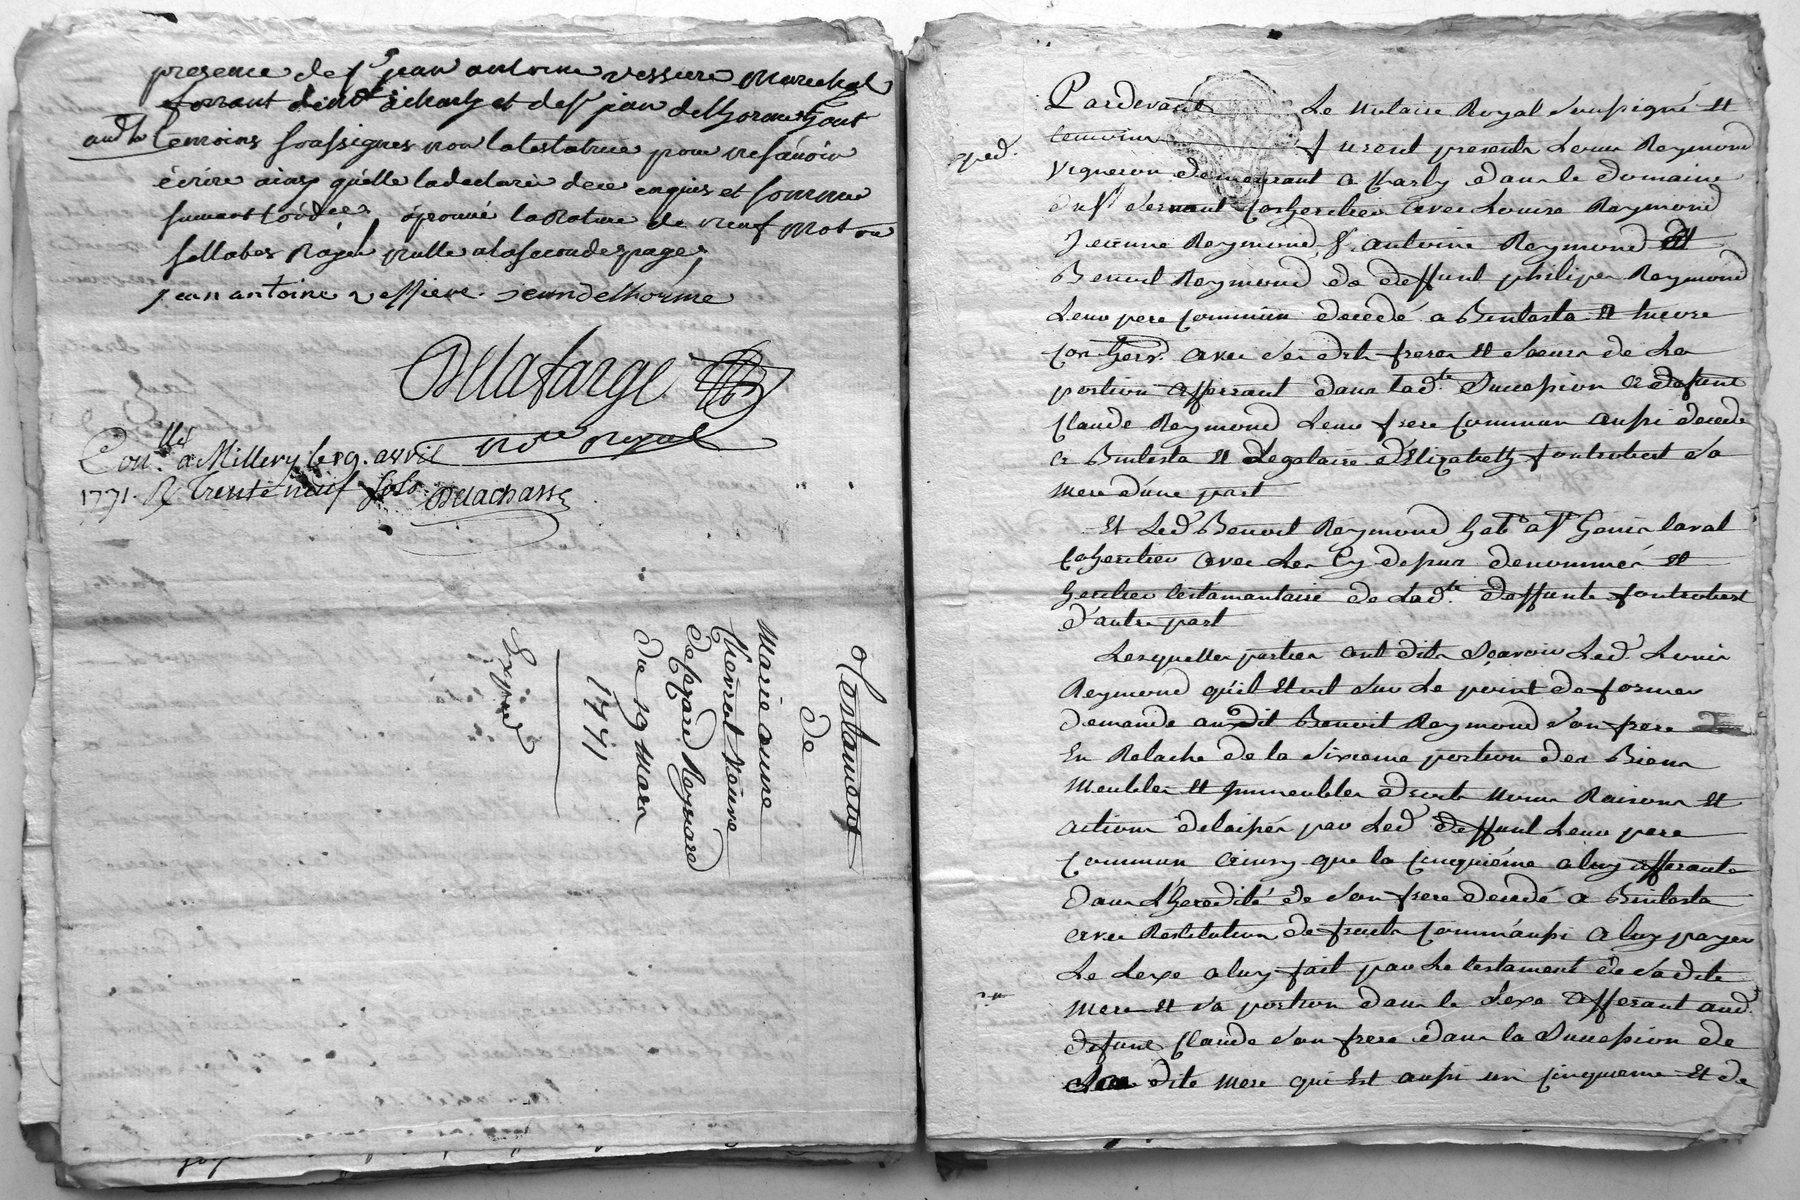 presence de sr jean antoine vessiere marechal
ferrant dem.t à charly et de sr jean delhorme haut
aud.t lieu
temoins soussignes non la testatrice pour ne savoir
écrire ainsy qu'elle la declaré de ce enquis et sommé
suivant l'ord.ce, aprouvé la rature de neuf mot ou
sillabes rayés nulle a la seconde page,
jean antoine vessiere. jean delhorme
Delafarge
no.re royal
Con.lle a Millery le 19. avril
1771. R. trente neuf sols
Delachasse
Testament
de
Marie anne
Thevenet veuve
de Reynard
du 19 Mars
1771
Exped
Pardevant Le notaire Royal soussigné et
temoins
exped.
furent presents Louis Reymond
vigneron demeurant a charly dans le domaine
du sr coheritier avec Louise Reymond
Jeanne Reymond, sr. antoine Reymond et
Benoit Reymond de deffunt philipes Reymond
Leur pere commun decedé a Bintesta et encore
coher. avec ses dits freres et sœurs de La
portion afferant dans lad.te succession a defunt
Claude Reymond Leur frere commun aussi decedé
a Bintesta et Legataire d'Elizabeth fontrobert sa
mere d'une part
Et Led. Benoit Reymond hab.t a st Genis laval
coheritier avec Les cy dessus denommés et
heritier testamentaire de Lad.te deffunte fontrobert
d'autre part
Lesquelles parties ont dit sçavoir Led. Louis
Reymond qu'il etoit sur Le point de former
demande audit Benoit Reymond son frere
En Relache de la sixieme portion des Biens
meubles et immeubles droits noms Raisons et
actions delaissés par Led. deffunt Leur pere
commun ainsy que la cinquiéme a luy afferante
dans L'heredité de son frere decedé a Bintesta
avec Restitution de fruits comm'aussi a luy payer
Le Legs a luy fait par Le testament de sa dite
mere et sa portion dans le Legs afferant aud.
defunt Claude son frere dans la succession de
Sa dite mere qui Est aussi un cinquieme et de